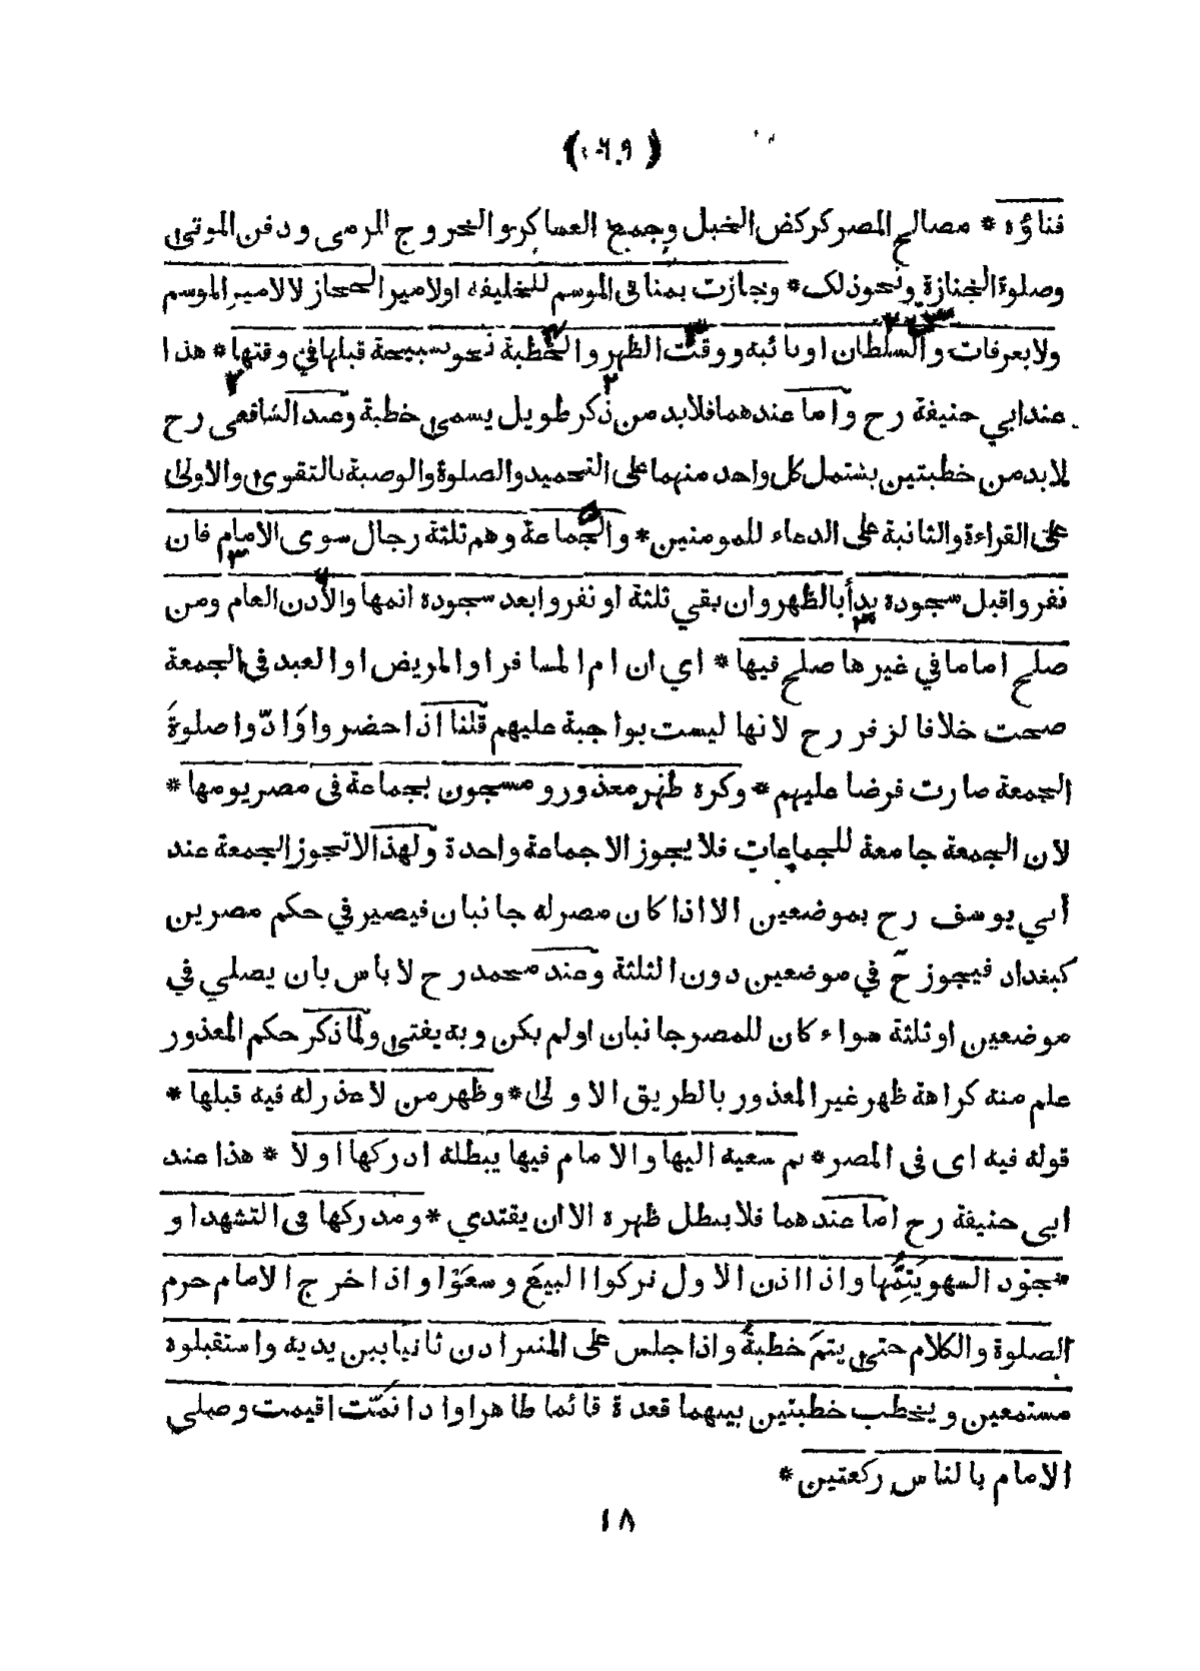 فناؤه * مصالح المصر كركض الخيل وجمع العساكر والخروج للرمى ودفن الموتى
وصلوة الجنازة ونحو ذلك * وجازت بمنا فى الموسم للخليفة او لامير الحجاز لا لامير الموسم
ولا بعرفات والسلطان او نائبه ووقت الظهر والخطبة نحو تسبيحة قبلها في وقتها * هذا
عند ابي حنيفة رح واما عندهما فلا بد من ذكر طويل يسمى خطبة وعند الشافعى رح
لا بد من خطبتين يشتمل كل واحد منهما على التحميد والصلوة والوصية بالتقوى والاولى
على القراءة والثانية على الدعاء للمومنين * والجماعة وهم ثلثة رجال سوى الامام فان
نفروا قبل سجوده بدأ بالظهر وان بقي ثلثة او نفروا بعد سجوده اتمها والاذن العام ومن
صلح اماما في غيرها صلح فيها * اي ان ام المسافر او المريض او العبد فى الجمعة
صحت خلافا لزفر رح لانها ليست بواجبة عليهم قلنا اذا حضروا وَادّوا صلوةَ
الجمعة صارت فرضا عليهم * وكره ظهر معذور ومسجون بجماعة فى مصر يومها *
لان الجمعة جامعة للجماعات فلا يجوز الا جماعة واحدة ولهذا لا تجوز الجمعة عند
أبي يوسف رح بموضعين الا اذا كان مصر له جانبان فيصير في حكم مصرين
كبغداد فيجوز حَ في موضعين دون الثلثة وعند محمد رح لا باس بان يصلي في
موضعين او ثلثة سواء كان للمصر جانبان او لم يكن وبه يفتى ولما ذكر حكم المعذور
علم منه كراهة ظهر غير المعذور بالطريق الاولى * وظهر من لا عذر له فيه قبلها *
قوله فيه اى فى المصر * ثم سعيه اليها والامام فيها يبطله ادركها اولا * هذا عند
ابى حنيفة رح اما عندهما فلا يبطل ظهره الا ان يقتدي * ومدركها فى التشهد او
سجود السهو يَتِمُّها واذا اذن الاول تركوا البيعَ وسعَوْا واذا خرج الامام حرم
الصلوة والكلام حتى يتمَ خطبةً واذا جلس على المنبر اذن ثانيا بين يديه واستقبلوه
مستمعين ويخطب خطبتين بينهما قعدة قائما طاهرا واذا تمّت اقيمت وصلي
الامام بالناس ركعتين *
١٨